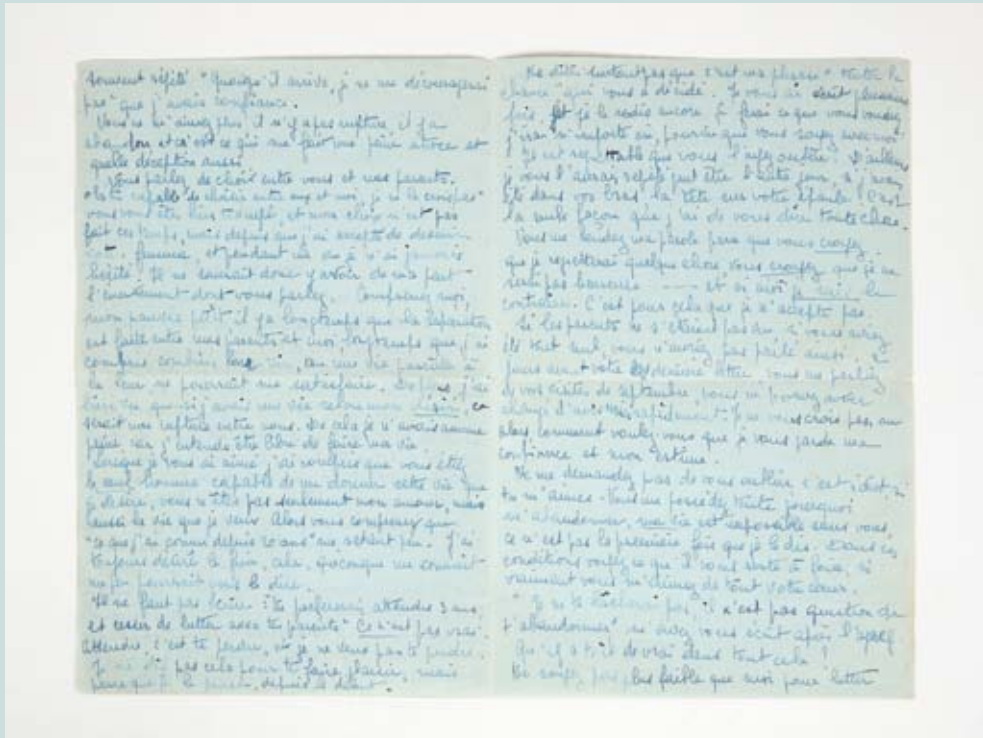 souvent répété "Quoiqu'il arrive, je ne me découragerai
pas" que j'avais confiance.
Vous ne m'aimez plus il n'y a pas rupture, il y a
abandon et c'est ce qui me fait une peine atroce et
quelle déception aussi
Vous parlez de choix entre vous et mes parents.
capable de choisir entre eux et moi, je ne le crois pas"
vous vous êtes bien trompé, et mon choix n'est pas
fait ces temps, mais depuis que j'ai accepté de devenir
femme, et pendant je n'ai jamais
hésité. Je ne saurait donc y avoir de ma part
l'écartement dont vous parlez. Comprenez moi,
mon pauvre petit il y a longtemps que la séparation
est faite entre mes parents et moi, longtemps que j'ai
compris combien vie, une vie pareille à
la leur ne pourrait me satisfaire. j'ai
bien vu que si j'avais une vie selon mon désir, ce
serait une rupture entre nous. De cela je n'avais aucune
peine car j'entends être libre de faire ma vie
Lorsque je vous ai aimé, j'ai compris que vous étiez
le seul homme capable de me donner cette vie que
je désire, vous n'êtes pas seulement mon amour, mais
aussi la vie que je veux. Alors vous comprenez que
"ce que j'ai connu depuis 20 ans" me retient peu. J'ai
toujours désiré le fuir, cela, quiconque me connait
un peu pourrait vous le dire.
Il ne faut pas écrire "tu préférerais attendre 3 ans
et cesser de lutter avec tes parents" Ce n'est pas vrai
Attendre, c'est te perdre, or je ne veux pas te perdre.
Je ne dis pas cela pour te faire plaisir, mais
parce que je le pense, depuis le début.
Ne dites surtout pas que c'est ma phrase "toute la
chance" qui vous a décidé. Je vous ai écrit plusieurs
fois, et je le redis encore Je ferai ce que vous voudrez
j'irai n'importe où, pourvu que vous soyez avec moi.
Il est regrettable que vous l'ayez oublié. D'ailleurs
je vous l'aurais répété peut être l'autre jour si j'avais
été dans vos bras, la tête sur votre épaule. C'est
la seule façon que j'ai de vous dire toute chose.
Vous me rendez ma parole parce que vous croyez
que je regretterai quelque chose, vous croyez que je ne
serai pas heureuse - - - - et si moi je suis le
contraire. C'est pour cela que je n'accepte pas.
Si les parents ne s'étaient pas vu, si vous aviez
été tout seul, vous n'auriez pas parlé ainsi.
jours avant votre dernière lettre vous me parliez
de vos visites de septembre, vous ne pouvez avoir
changé d'avis si rapidement. Je ne vous crois pas, ou
alors comment voulez-vous que je vous garde ma
confiance et mon estime.
Ne me demandez pas de vous oublier c'est idiot si
tu m'aimes. Vous me possédez toute pourquoi
m'abandonner, ma vie est impossible sans vous,
ce n'est pas la première fois que je le dis. Dans ces
conditions voulez ce que il vous reste à faire, si
vraiment vous m'aimez de tout votre cœur.
"Je ne te lâcherai pas, il n'est pas question de
t'abandonner" m'avez vous écrit après
Qu'y a t-il de vrai dans tout cela !
Ne soyez pas plus faible que moi pour lutter